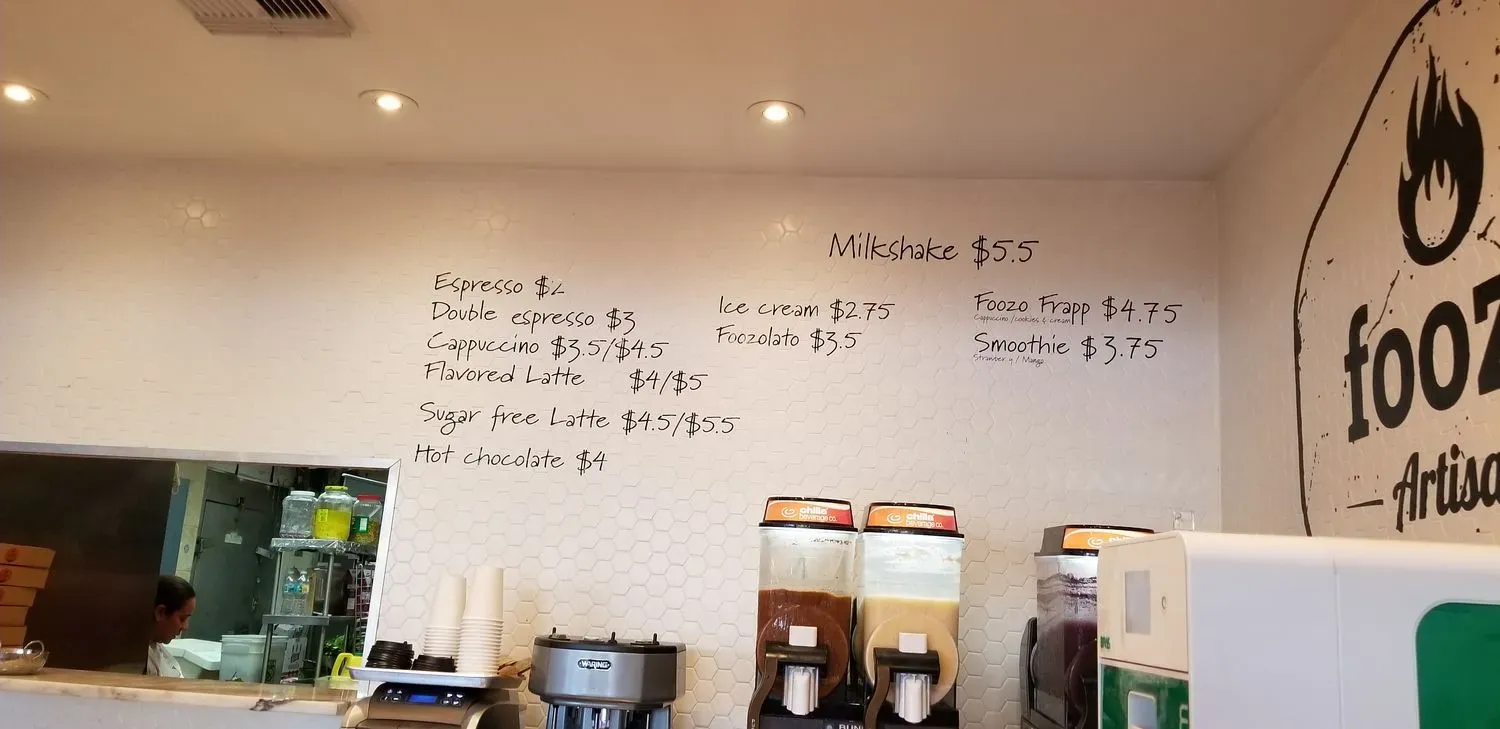 Milkshake $5.5
Espresso $2
Double espresso $3
Cappuccino $3.5/$4.5
Flavored Latte $4/$5
Sugar free Latte $4.5/$5.5
Hot chocolate $4
Ice cream $2.75
Foozolato $3.5
Foozo Frapp $4.75
Cappuccino /cookies & cream
Smoothie $3.75
Strawber y / Mango
fooz
Artisa
WARING
chilla
beverage co.
chilla
beverage co.
BUNN